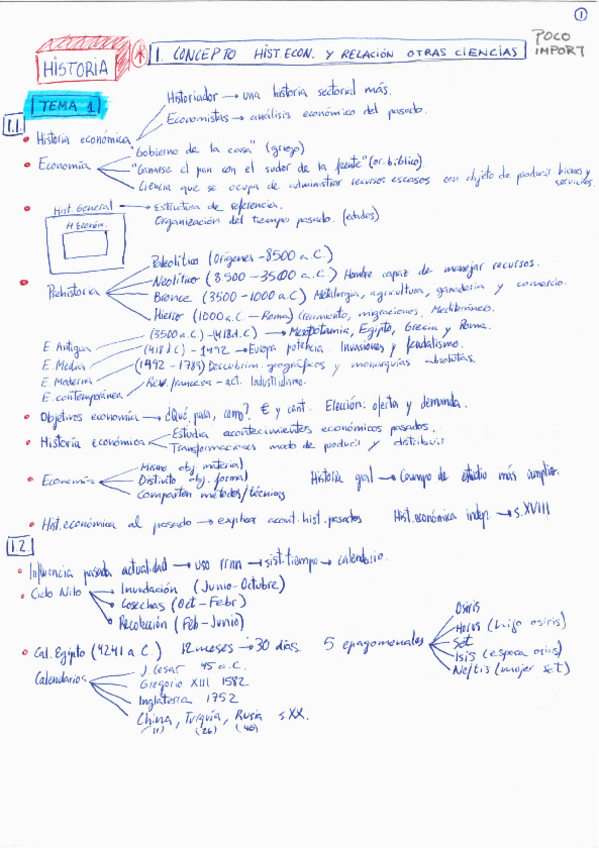 1
HISTORIA
* 1. CONCEPTO HIST.ECON. Y RELACIÓN OTRAS CIENCIAS
POCO IMPORT
TEMA 1
1.1.
Historia económica
Historiador → una historia sectorial más.
Economistas → análisis económico del pasado.
Economía
"Gobierno de la casa" (griego)
"Ganarse el pan con el sudor de la frente" (or. bíblico)
Ciencia que se ocupa de administrar recursos escasos con objeto de producir bienes y servicios.
Hist. General
Estructura de referencia.
Organización del tiempo pasado. (edades)
H. Econón.
Prehistoria
Paleolítico (Orígenes - 8500 a.C.)
Neolítico (8.500 - 3500 a.C.) Hombre capaz de manejar recursos.
Bronce (3500 - 1000 a.C.) Metalurgia, agricultura, ganadería y comercio.
Hierro (1000 a.C. - Roma) (crecimiento, migraciones, Mediterráneo.
E. Antigua (3500 a.C.) - (418 d.C.) → Mesopotamia, Egipto, Grecia y Roma.
E. Media (418 d.C.) - 1492 → Europa potencia. Invasiones y feudalismo.
E. Moderna (1492 - 1789) Descubrim. geográficos y monarquías absolutas.
E. contemporánea Rev. francesa - act. Industrialismo.
Objetivos economía → ¿Qué, para, como? € y cant. Elección: oferta y demanda.
Historia económica
Estudia acontecimientos económicos pasados.
Transformaciones modo de producir y distribuir
Economía
Mismo obj. material
Distinto obj. formal
Comparten métodos/técnicas
Historia gral → Campo de estudio más amplio.
Hist. económica al pasado → explicar acont. hist. pasados
Hist. económica indep. → s. XVIII
1.2.
Influencia pasada actualidad → uso rrnn → sist. tiempo → calendario.
Ciclo Nilo
Inundación (Junio-Octubre)
Cosechas (Oct - Febr)
Recolección (Feb-Junio)
Cal. Egipto (4241 a.C.) 12 meses → 30 días. 5 epagomenales
Osiris
Horus (hijo osiris)
Set
Isis (esposa osiris)
Neftis (mujer set)
Calendarios
J. Cesar 45 a.C.
Gregorio XIII 1582
Inglaterra 1752
China, Turquía, Rusia s. XX.
(11) (26) (40)